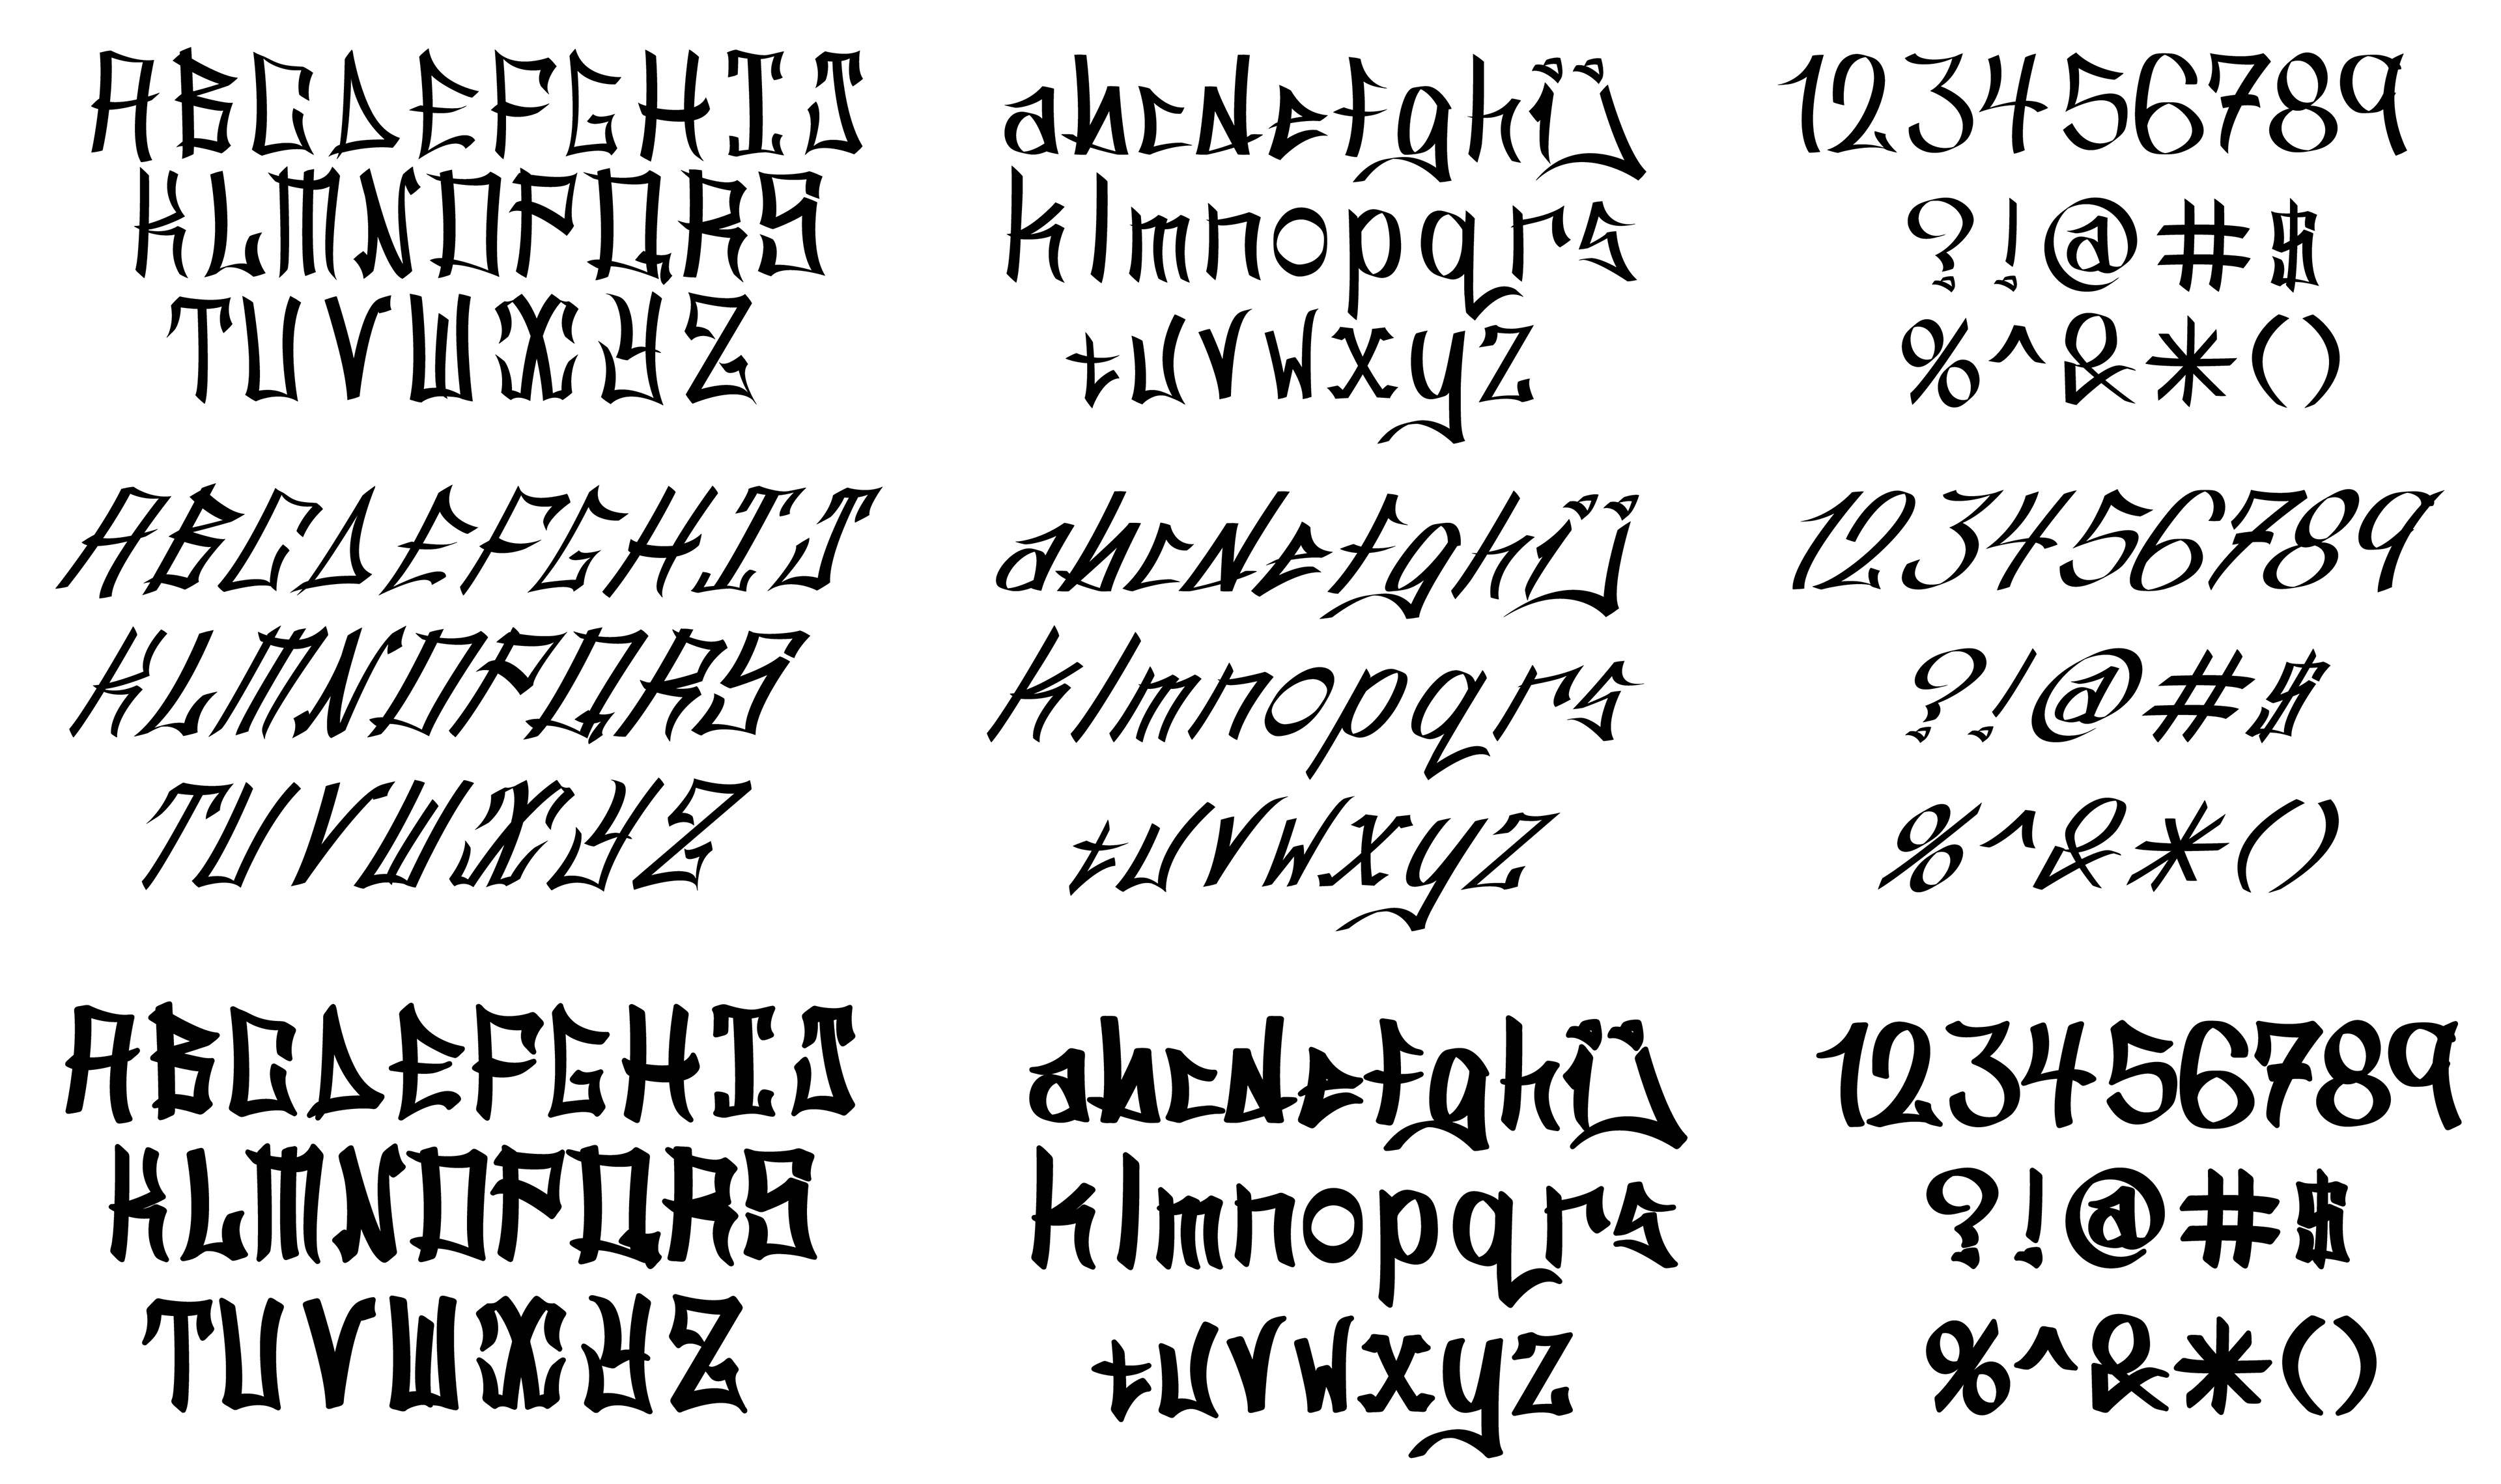 ABCDEFGHIJ
KLMNOPQRS
TUVWXYZ
abcdefghij
klmnopqrs
tuvwxyz
123456789
?!@#$
%^&*()
ABCDEFGHIJ
KLMNOPQRS
TUVWXYZ
abcdefghij
klmnopqrs
tuvwxyz
123456789
?!@#$
%^&*()
ABCDEFGHIJ
KLMNOPQRS
TUVWXYZ
abcdefghij
klmnopqrs
tuvwxyz
123456789
?!@#$
%^&*()